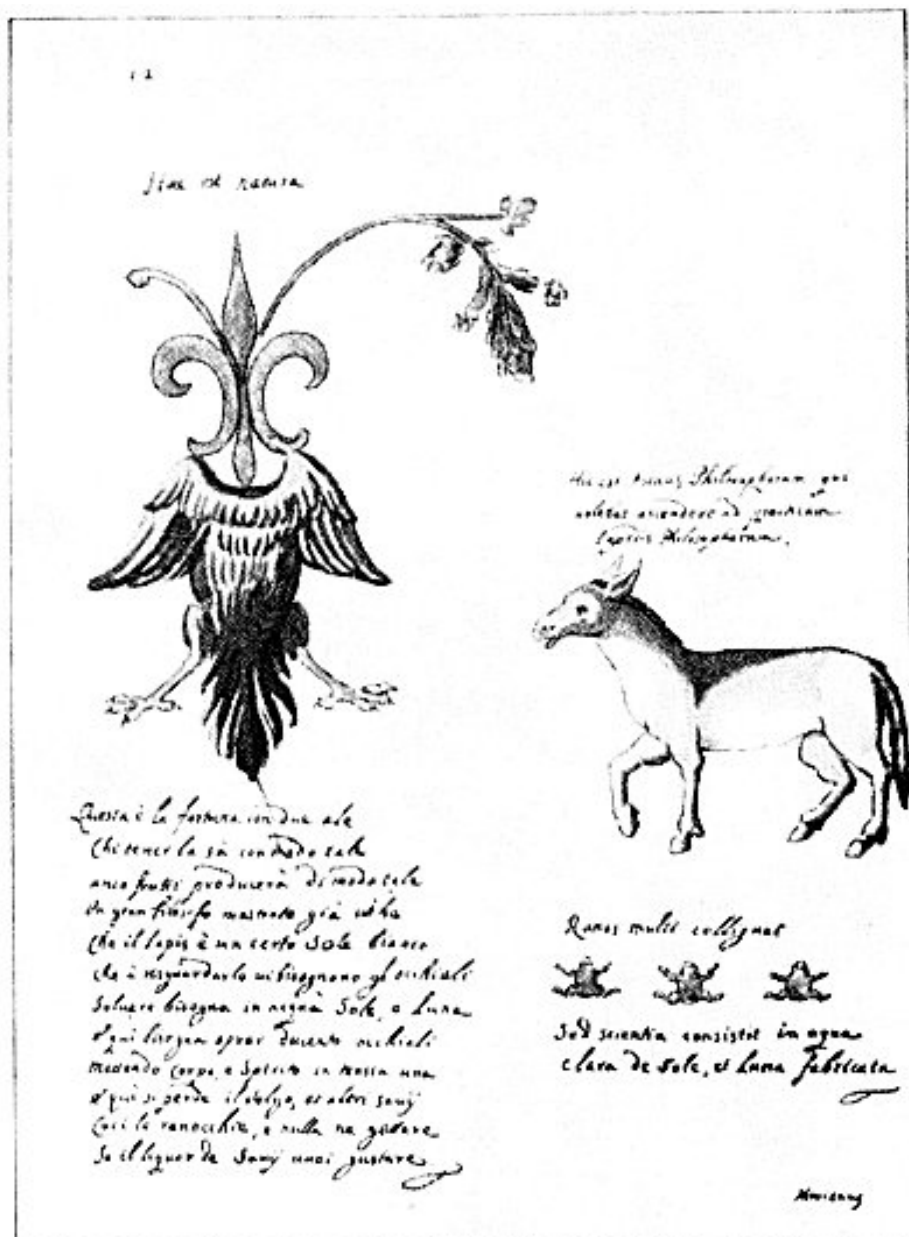 12
Ista est natura
Hic est Asinus Philosophorum qui
ascendere ad
Lapidis Philosophorum.
Questa è la fortuna con due ale
Chi tener la sà con modo tale
anco frutti producerà di modo tale
Un gran filosofo mostrato già
che il lapis è un certo Sole bianco
che à risguardarlo vi bisognano gl occhiali
Soluere bisogna in acqua Sole, e Luna
e qui bisogna oprar ducento occhiali
mettendo corpo, e Spirito in una
e qui si perde il volgo, et altri
le ranocchie, e nulla
Se il liquor de vuoi gustare
Ranas multi colligunt
Sed scientia consistit in aqua
clara de Sole, et Luna fabricata